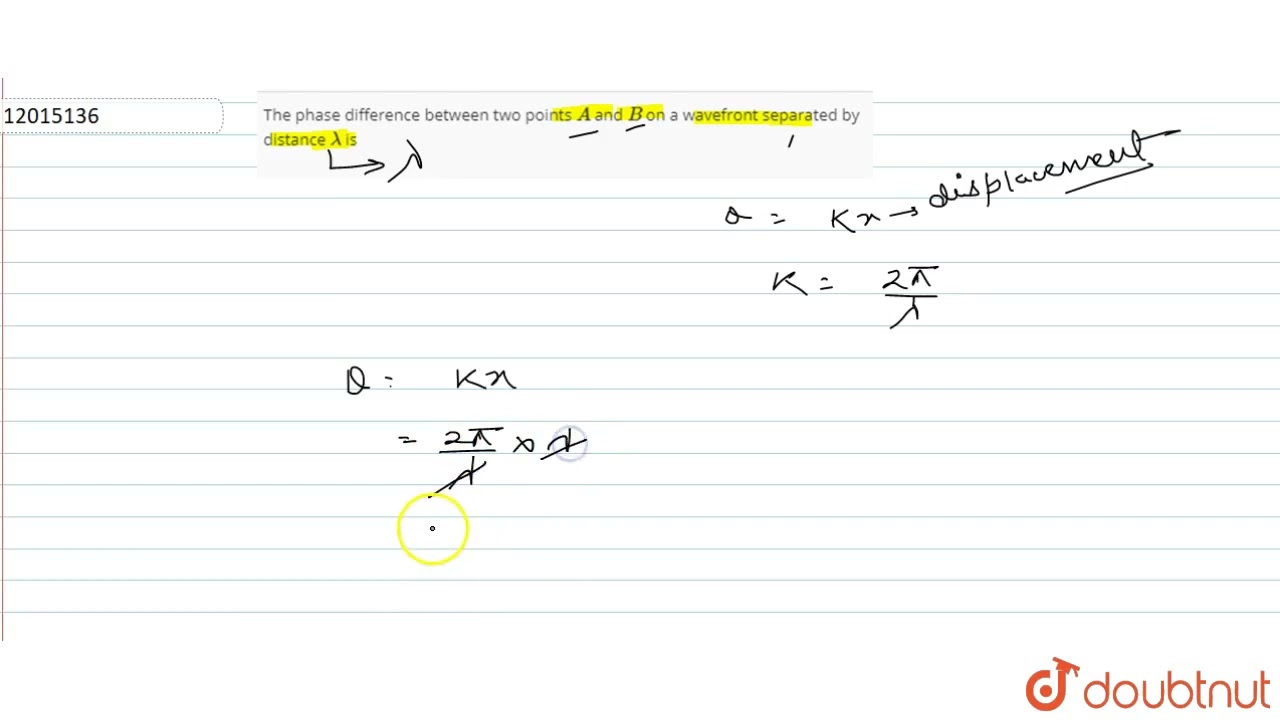 12015136
The phase difference between two points A and B on a wavefront separated by
distance λ is
λ
θ = Kx → displacement
K = 2π/λ
θ = Kx
= 2π/λ × λ
doubtnut